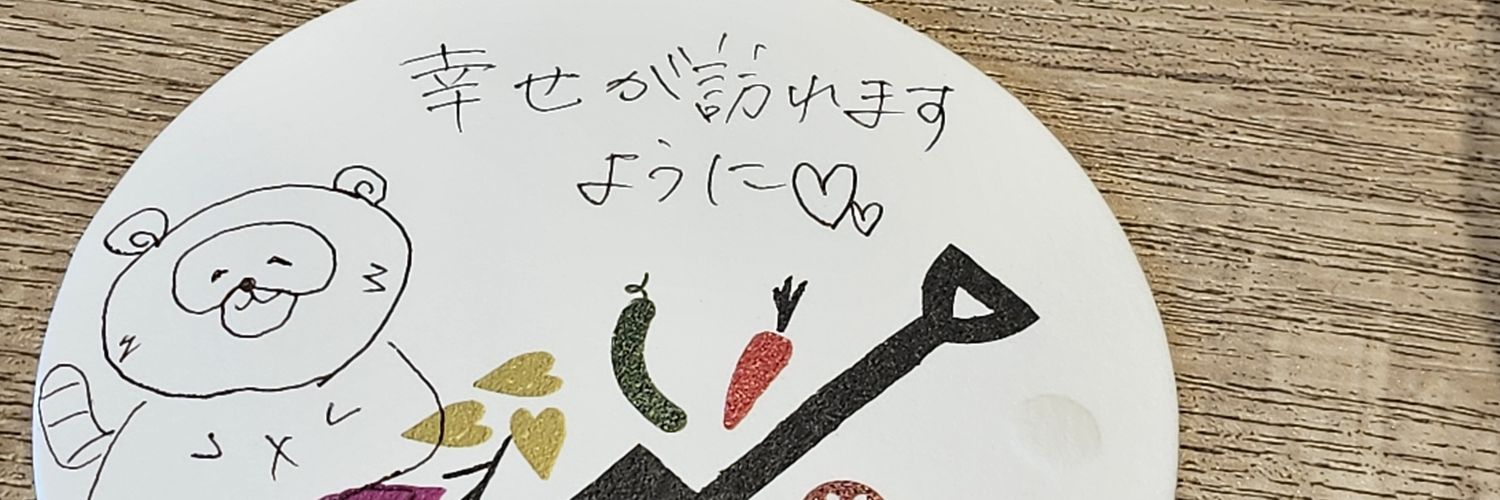 幸せが訪れます
ように♡♡